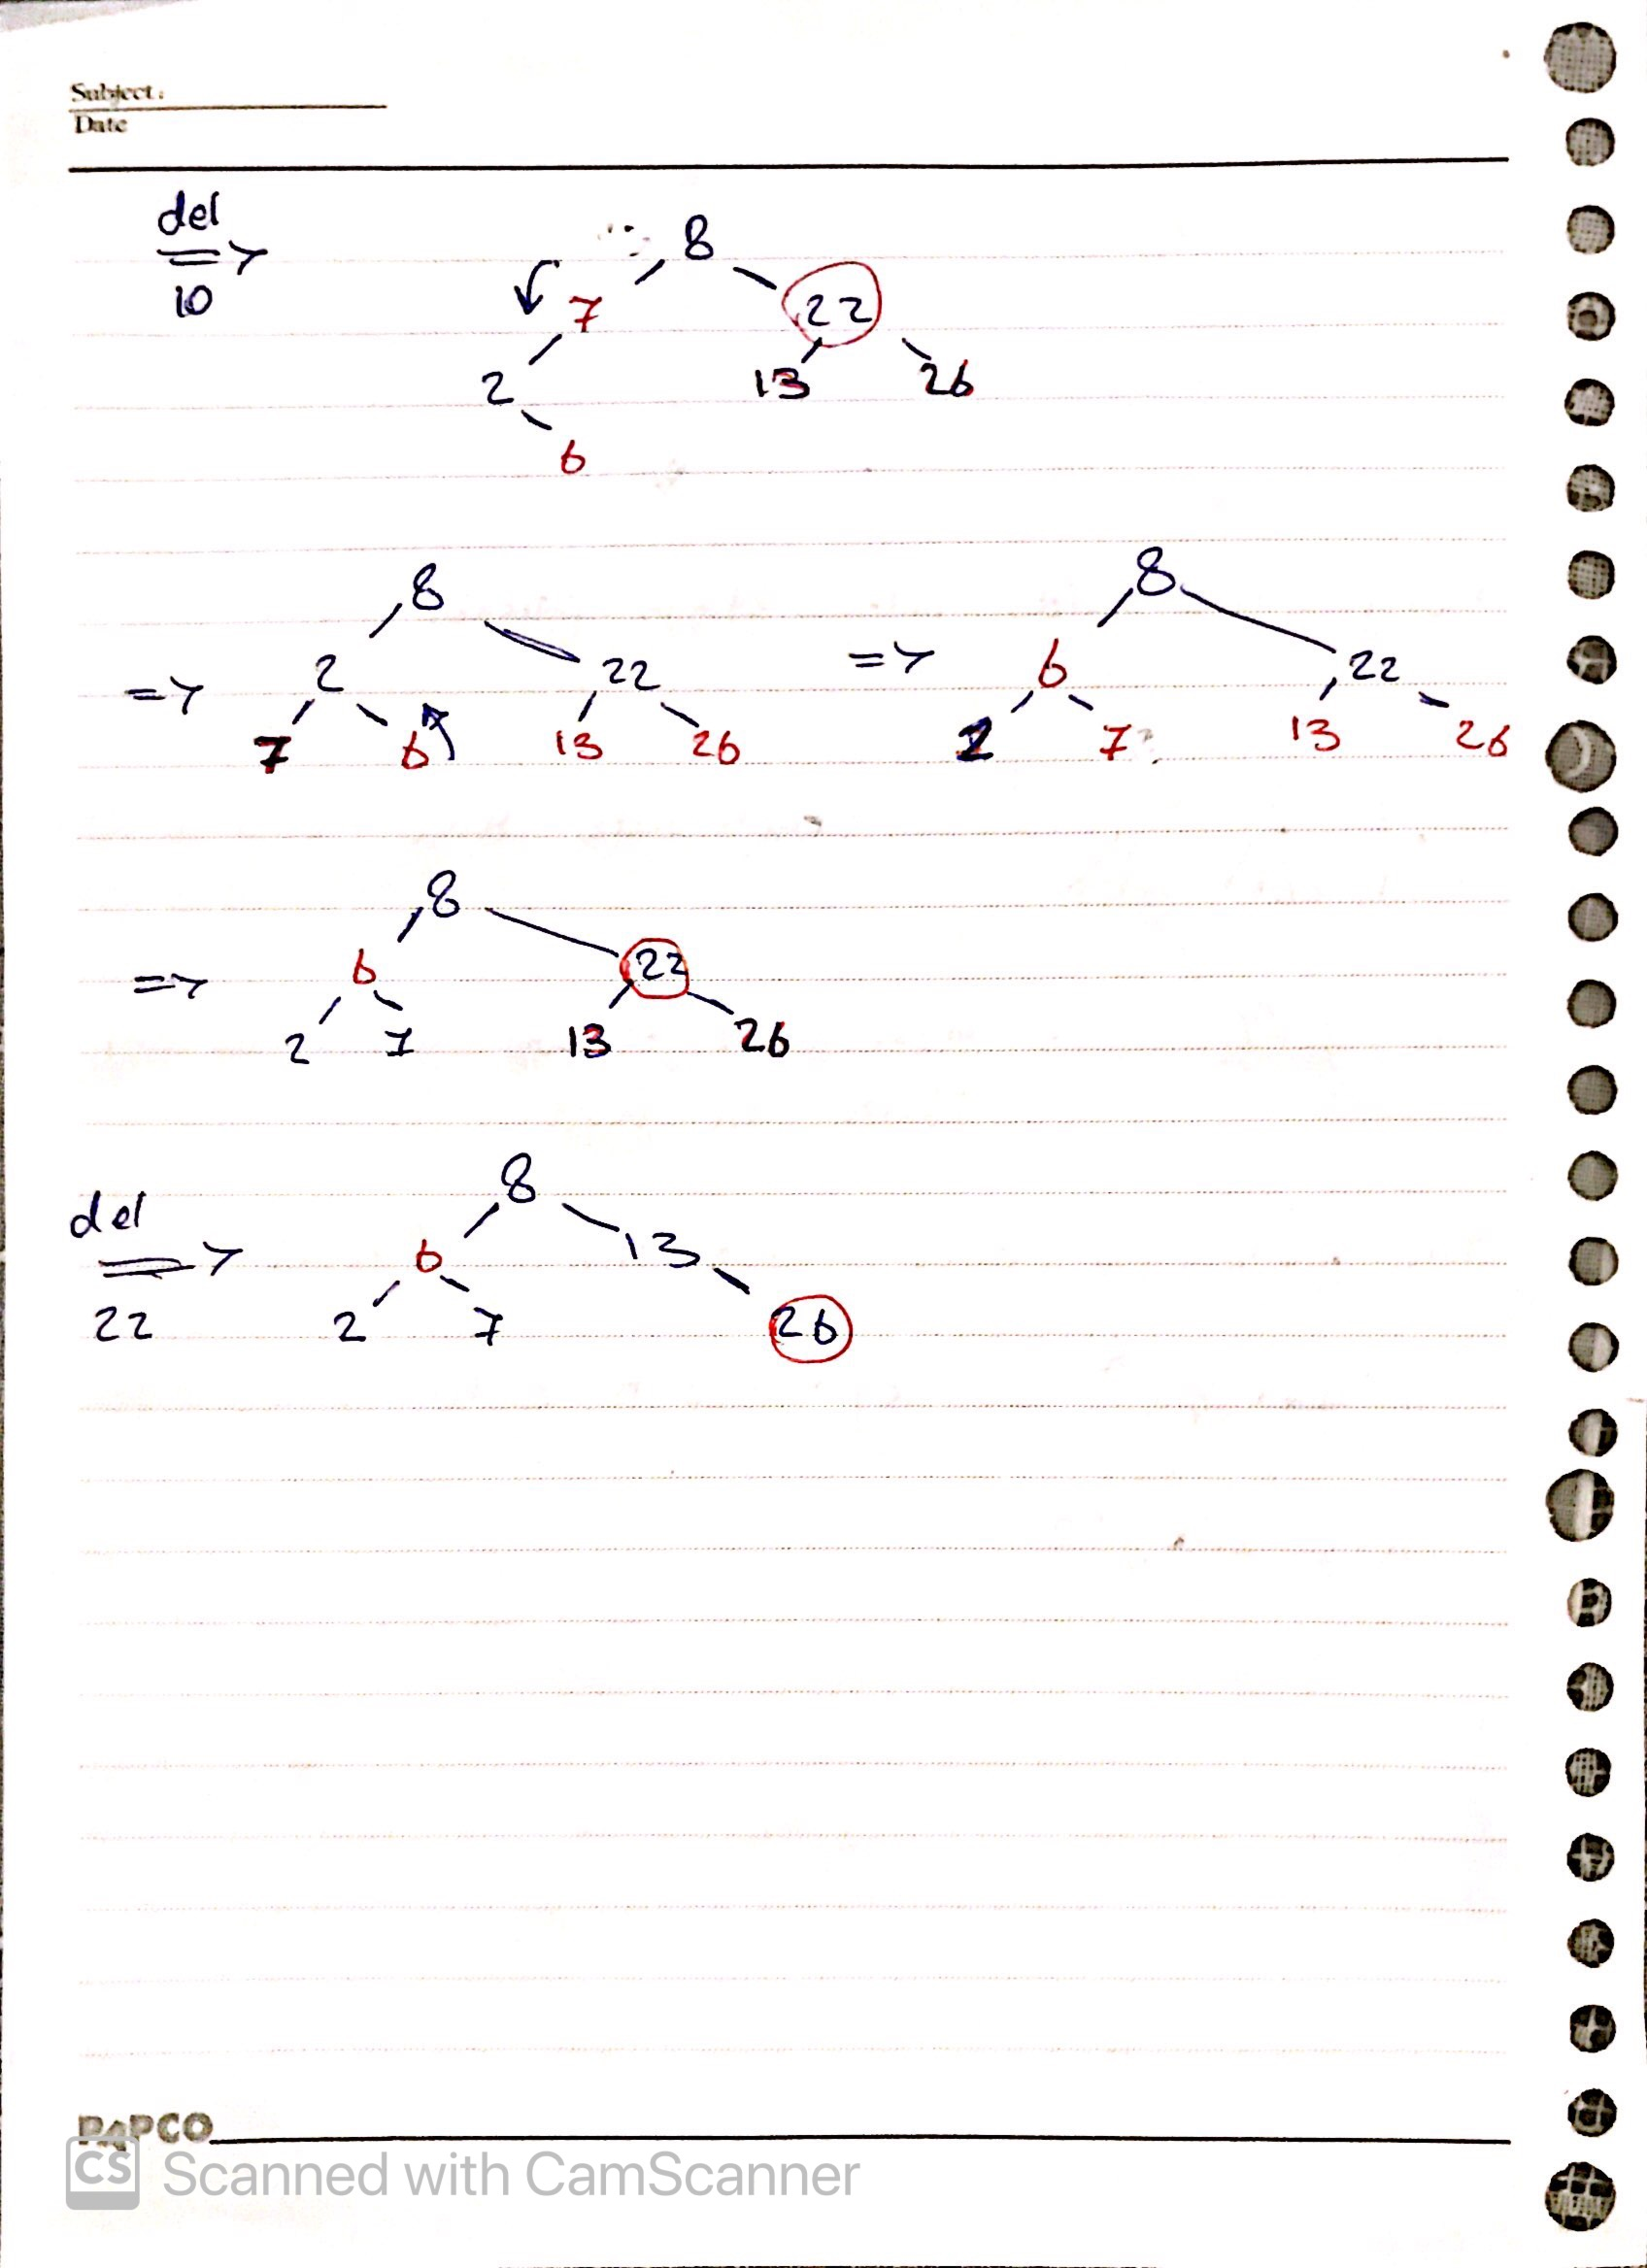 Subject:
Date
del
=>
10
8
7 22
2 13 26
6
8 8
=> 2 22 => 6 22
7 6 13 26 2 7 13 26
8
=> 6 22
2 7 13 26
del 8
=> 6 13
22 2 7 26
PAPCO
CS Scanned with CamScanner